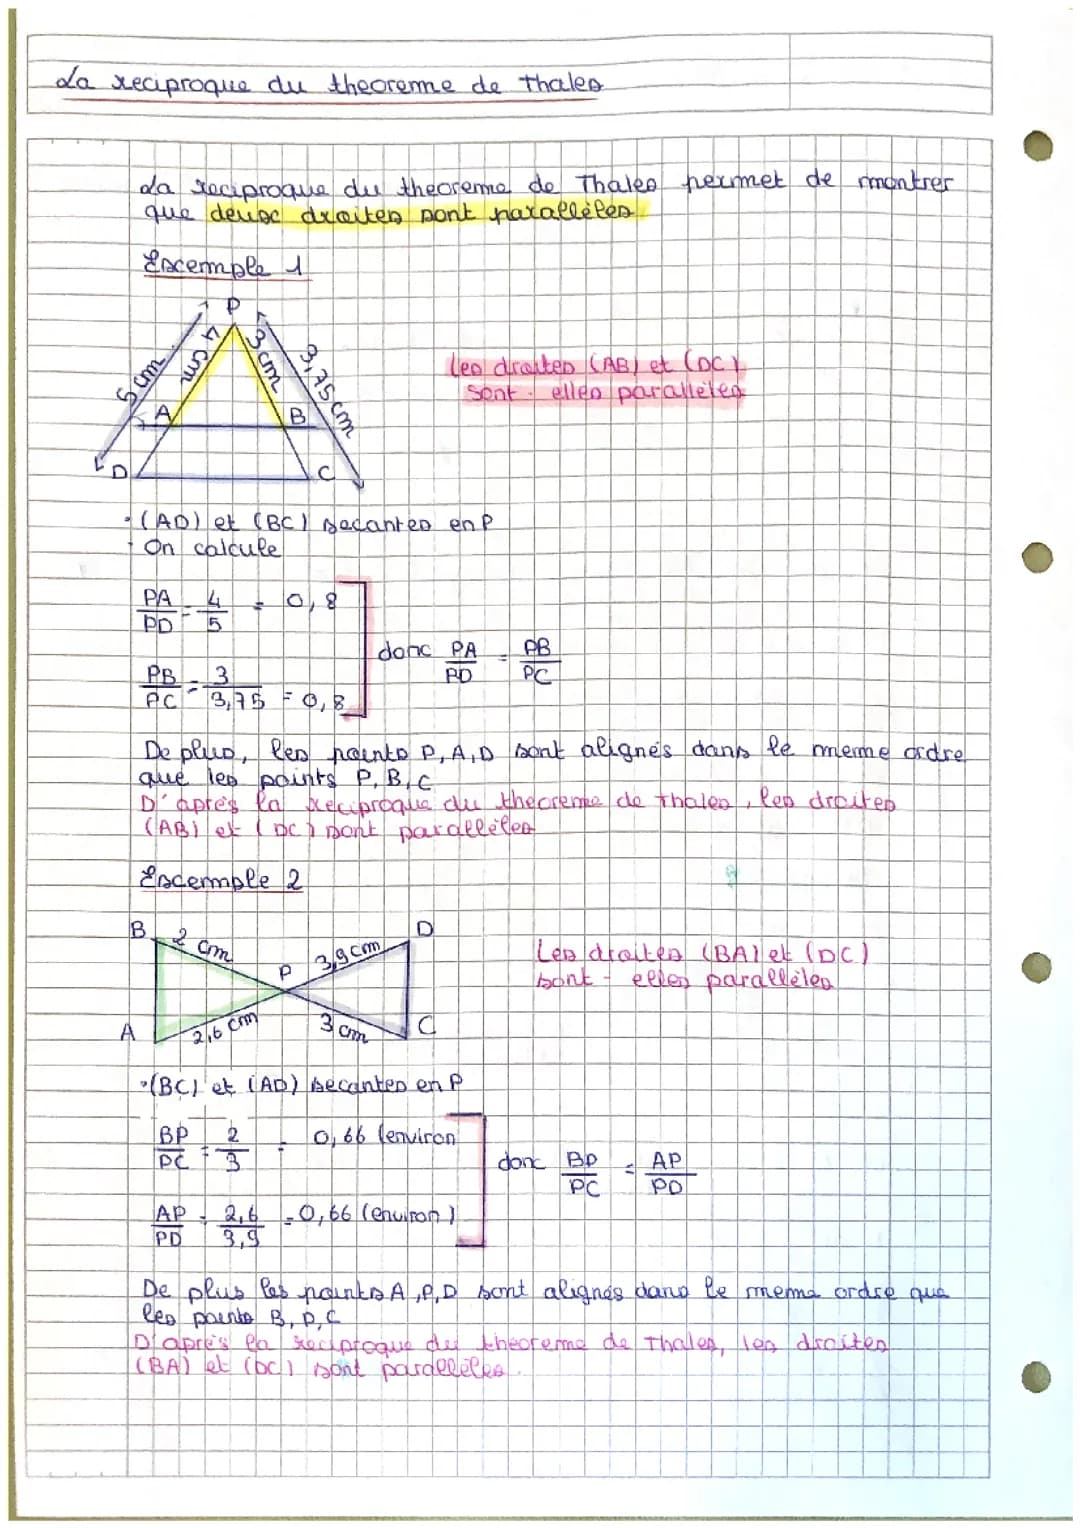 La reciproque du theoreme de Thales
La reciproque du theoreme de Thales permet de montrer
que deux droites sont parallèles
Excemple 1
P
5 cm
4 cm
3 cm
3,75 cm
A
B
D
C
Les droites (AB) et (DC)
sont - elles parallèles
• (AD) et (BC) secantes en P
• On calcule
PA/PD = 4/5 = 0,8
donc PA/PD = PB/PC
PB/PC = 3/3,75 = 0,8
De plus, les points P, A, D sont alignés dans le meme ordre
que les points P, B, C
D'après la reciproque du theoreme de Thales, les droites
(AB) et (DC) sont parallèles
Excemple 2
B
2 cm
P
3,9 cm
D
A
2,6 cm
3 cm
C
Les droites (BA) et (DC)
sont - elles parallèles
• (BC) et (AD) secantes en P
BP/PC = 2/3 = 0,66 (environ
donc BP/PC = AP/PD
AP/PD = 2,6/3,9 = 0,66 (environ)
De plus les points A, P, D sont alignés dans le meme ordre que
les points B, P, C
D'après la reciproque du theoreme de Thales, les droites
(BA) et (DC) sont parallèles.